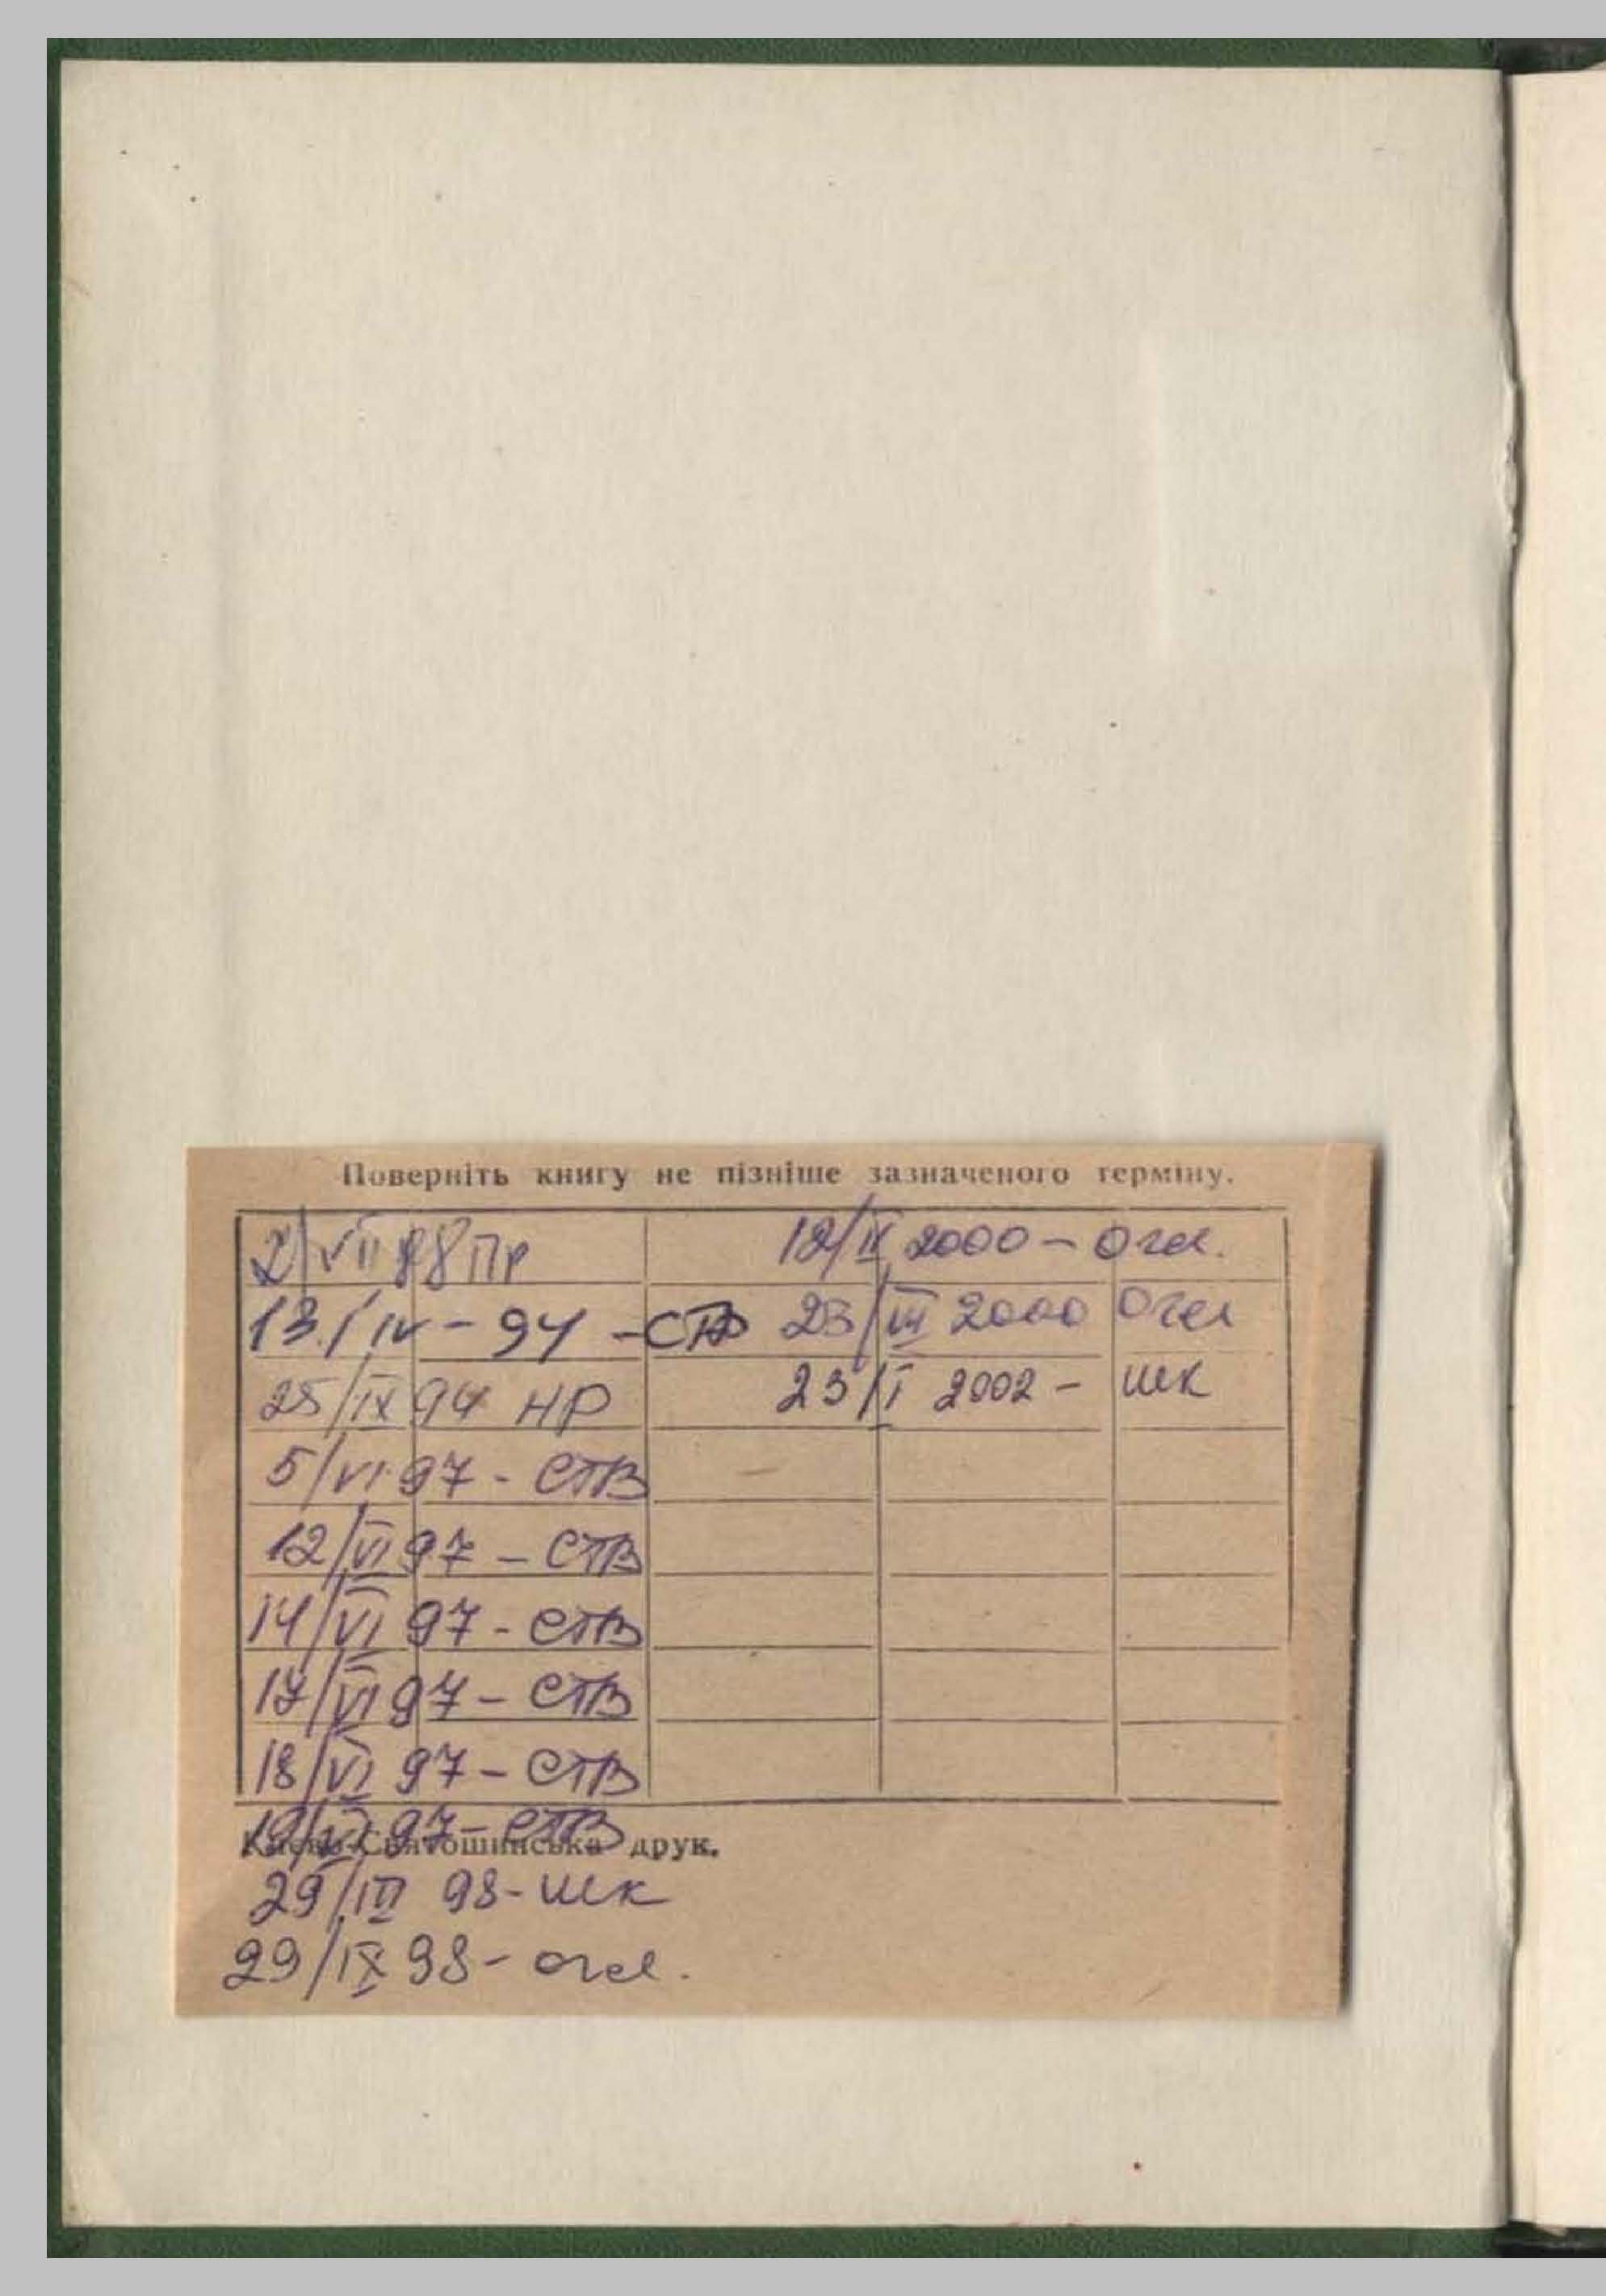 Поверніть книгу не пізніше зазначеного терміну.
2/VII 88 Пр
13./IV - 94 - СТВ
25/IX 94 НР
5/VI 97 - СТВ
12/VI 97 - СТВ
14/VI 97 - СТВ
17/VI 97 - СТВ
18/VI 97 - СТВ
19/VI 97 - СТВ
Києво-Святошинська друк.
29/III 98 - шк
29/IX 98 -
12/II 2000 -
23/III 2000
23/I 2002 - шк